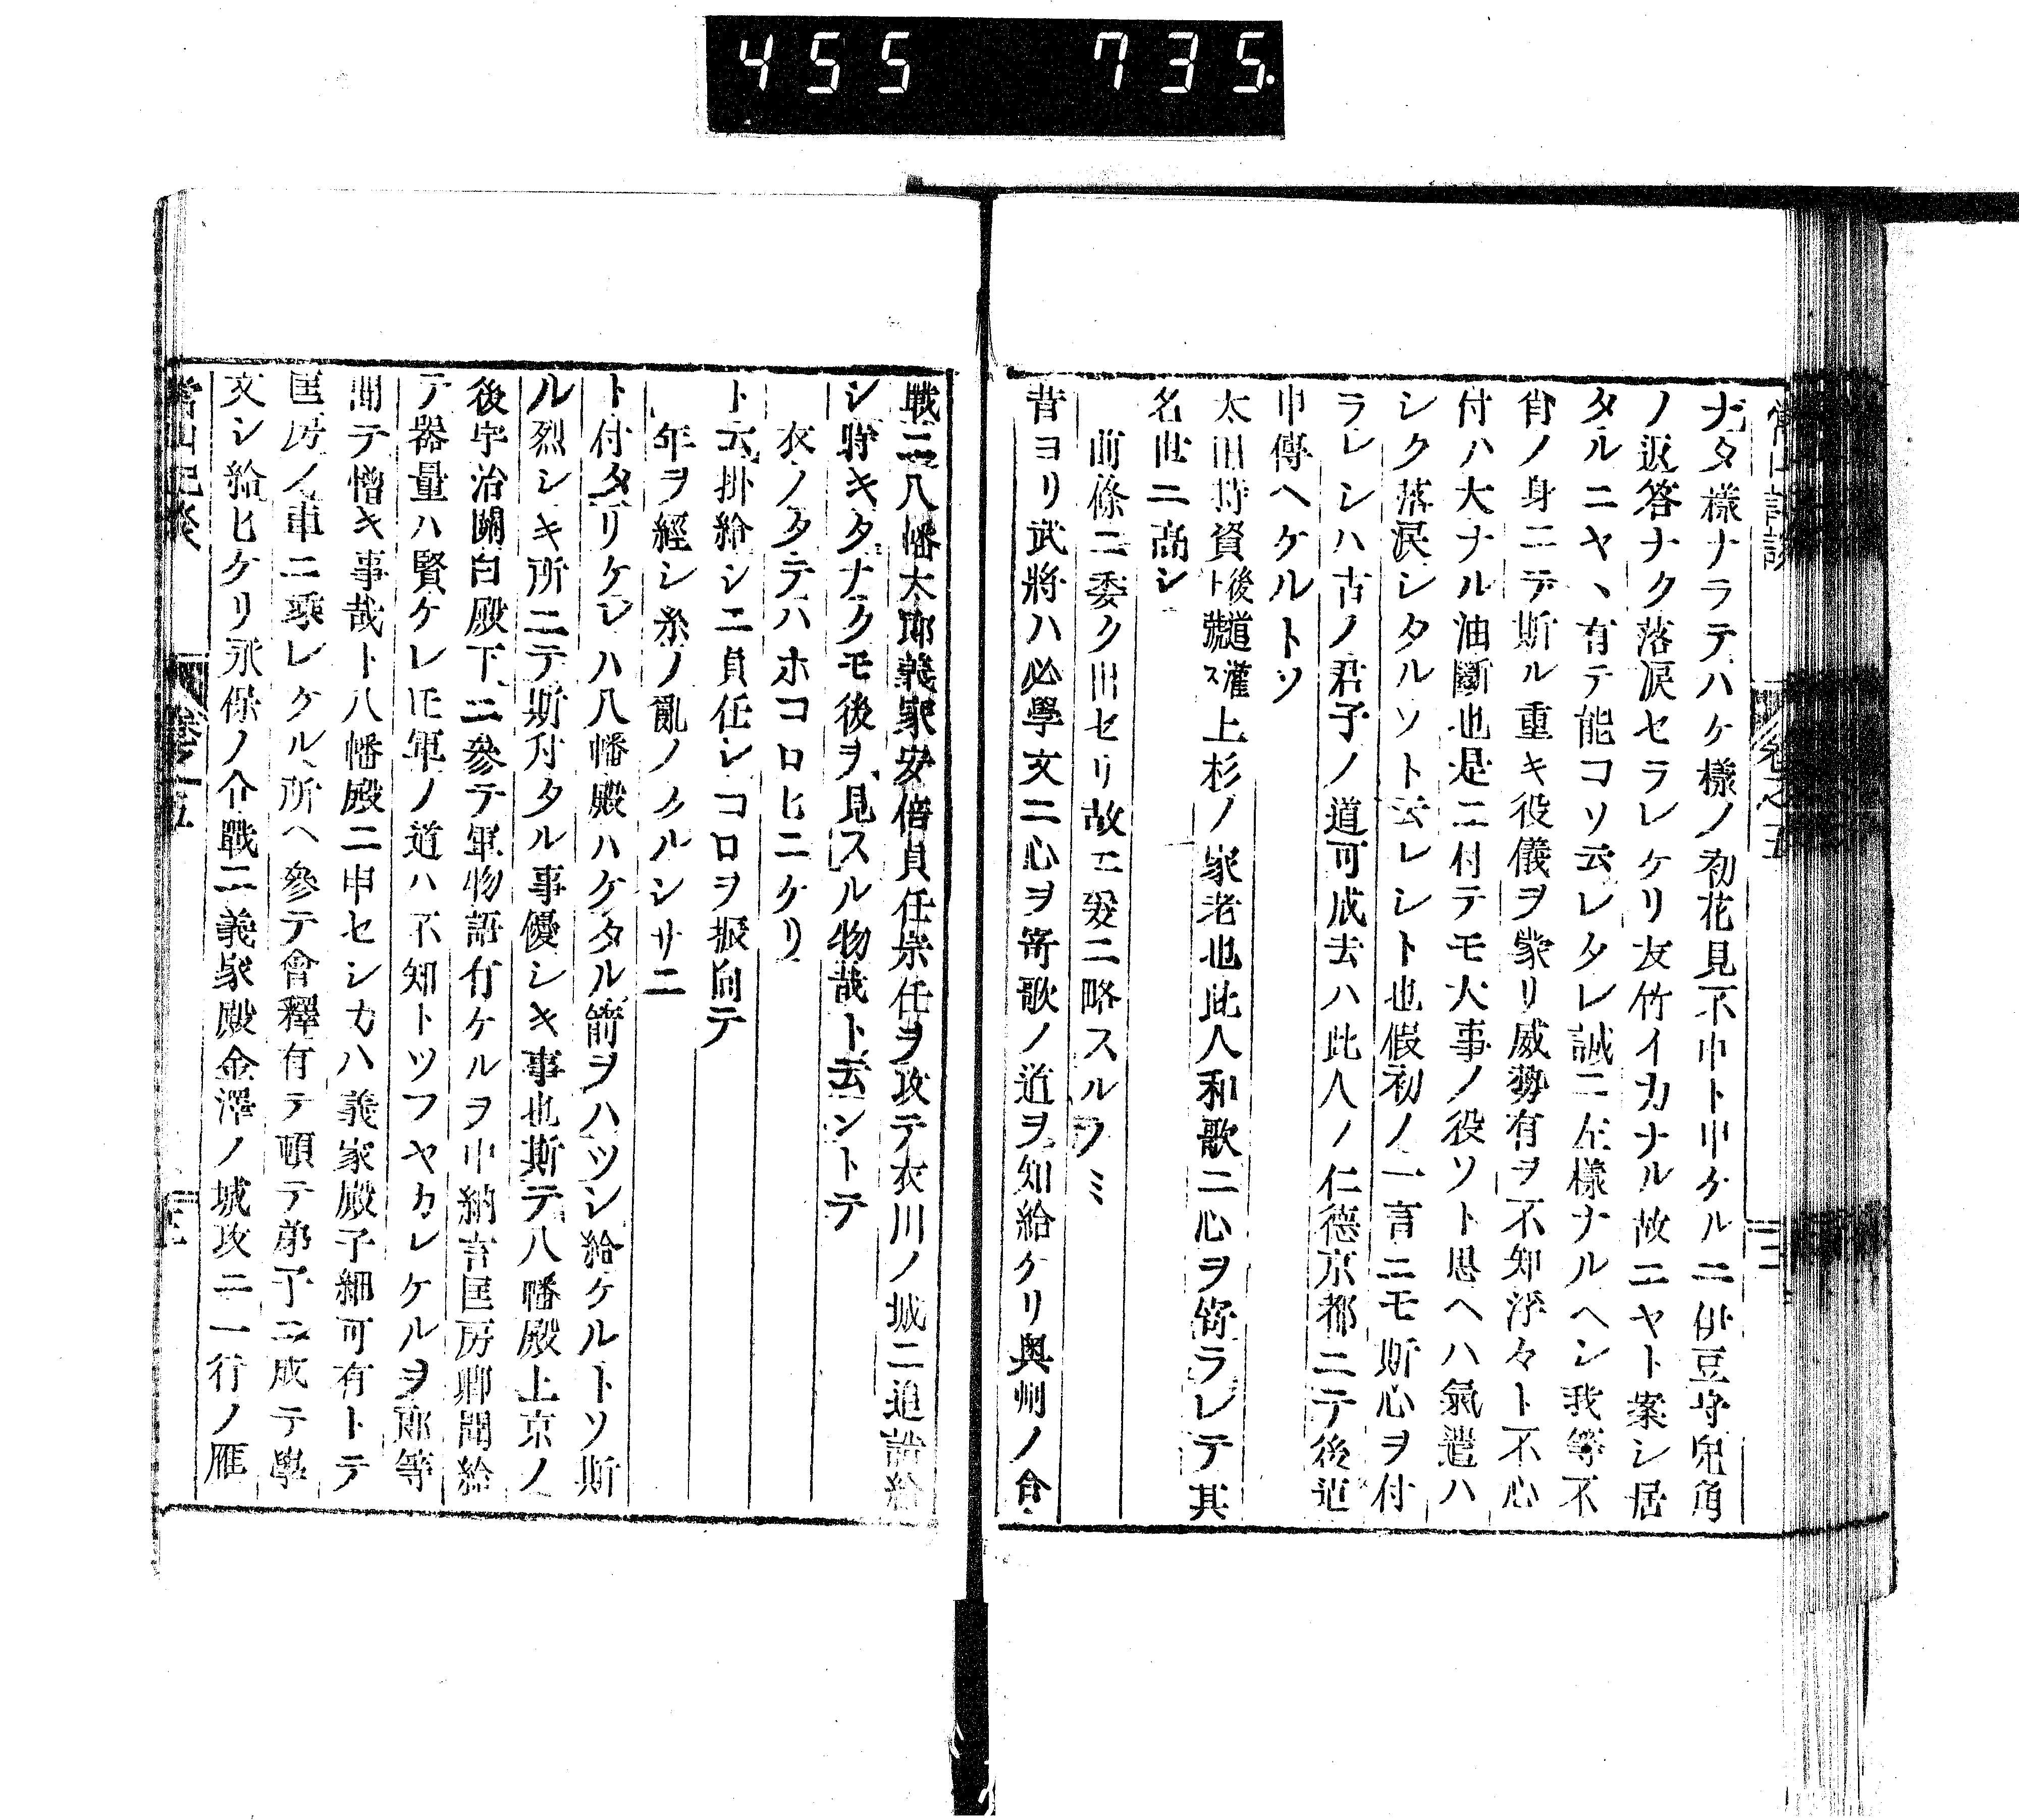 455 735.
ナタ樣ナラテハケ樣ノ初花見不申ト申ケルニ伊豆守兎角
ノ返答ナク落淚セラレケリ友竹イカナル故ニヤト案シ居
タルニヤヽ有テ能コソ云レタレ誠ニ左樣ナルヘシ我等不
肖ノ身ニテ斯ル重キ役儀ヲ蒙リ威勢有ヲ不知浮々ト不心
付ハ大ナル油斷也是ニ付テモ大事ノ役ソト思ヘハ氣遣ハ
シク落淚シタルソト云レシト也假初ノ一言ニモ斯心ヲ付
ラレシハ古ノ君子ノ道可成去ハ此人ノ仁德京都ニテ後迄
申傳ヘケルトソ
太田持資後道灌ト號ス上杉ノ家老也此人和歌ニ心ヲ寄ラレテ其
名世ニ高シ
前條ニ委ク出セリ故ニ爰ニ略スルノミ
昔ヨリ武將ハ必學文ニ心ヲ寄歌ノ道ヲ知給ケリ奥州ノ合
戰ニ八幡太郎義家安倍貞任宗任ヲ攻テ衣川ノ城ニ追詰給
シ時キタナクモ後ヲ見スル物哉ト云シトテ
衣ノタテハホコロヒニケリ
ト云掛給シニ貞任シコロヲ振向テ
年ヲ經シ糸ノ亂ノクルシサニ
ト付タリケレハ八幡殿ハケタル箭ヲハツシ給ケルトソ斯
ル烈シキ所ニテ斯付タル事優シキ事也斯テ八幡殿上京ノ
後宇治關白殿下ニ參テ軍物語有ケルヲ中納言匡房卿聞給
テ器量ハ賢ケレ𪜈軍ノ道ハ不知トツフヤカレケルヲ郎等
聞テ憎キ事哉ト八幡殿ニ申セシカハ義家殿子細可有トテ
匡房ノ車ニ乘レケル所ヘ參テ會釋有テ頓テ弟子ニ成テ學
文シ給ヒケリ永保ノ合戰ニ義家殿金澤ノ城攻ニ一行ノ雁